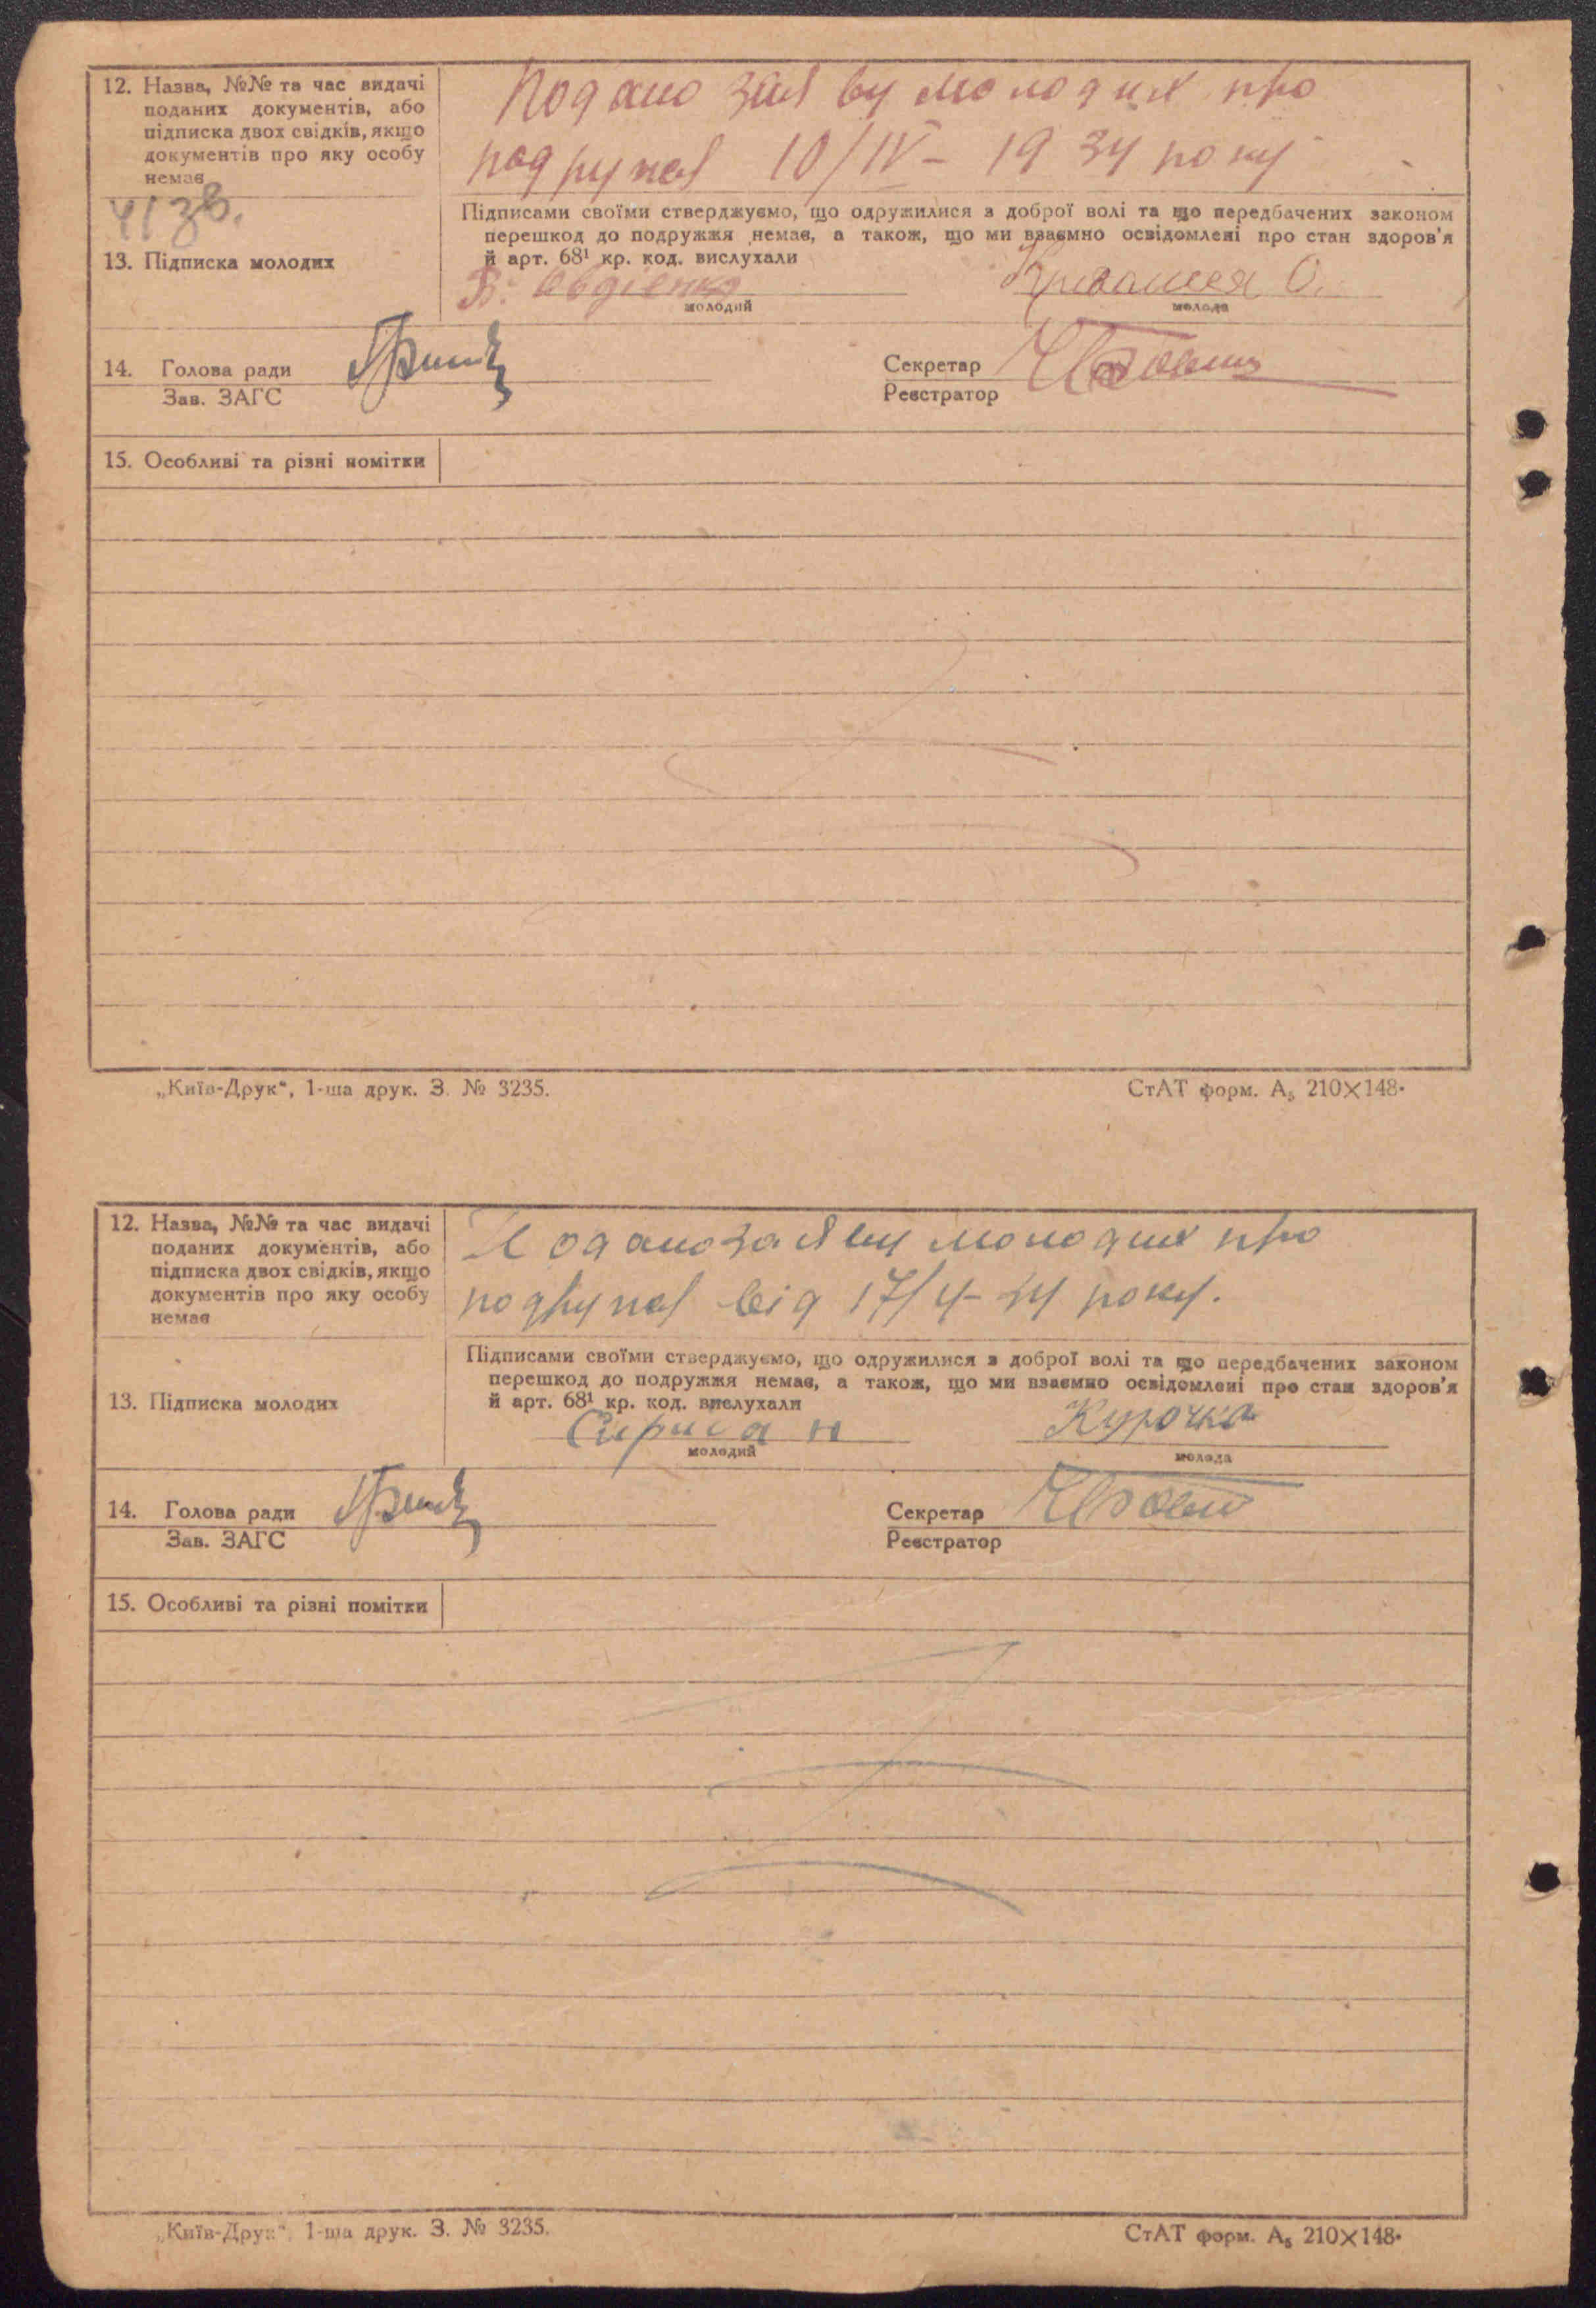 12. Назва, №№ та час видачі
поданих документів, або
підписка двох свідків, якщо
документів про яку особу
немає
Подано заяву молодих про
подружжя 10/IV – 1934 року
Підписами своїми стверджуємо, що одружилися з доброї волі та що передбачених законом
перешкод до подружжя немає, а також, що ми взаємно освідомлені про стан здоров'я
й арт. 68¹ кр. код. вислухали
13. Підписка молодих
В. Овдієнко
О.
молодий молода
14. Голова ради
Зав. ЗАГС
Секретар
Реєстратор
15. Особливі та різні помітки
„Київ-Друк“, 1-ша друк. З. № 3235. СтАТ форм. А₅ 210×148.
12. Назва, №№ та час видачі
поданих документів, або
підписка двох свідків, якщо
документів про яку особу
немає
Подано заяву молодих про
від 17/ року.
Підписами своїми стверджуємо, що одружилися з доброї волі та що передбачених законом
перешкод до подружжя немає, а також, що ми взаємно освідомлені про стан здоров'я
й арт. 68¹ кр. код. вислухали
13. Підписка молодих
Курочка
молодий молода
14. Голова ради
Зав. ЗАГС
Секретар
Реєстратор
15. Особливі та різні помітки
„Київ-Друк“, 1-ша друк. З. № 3235. СтАТ форм. А₅ 210×148.